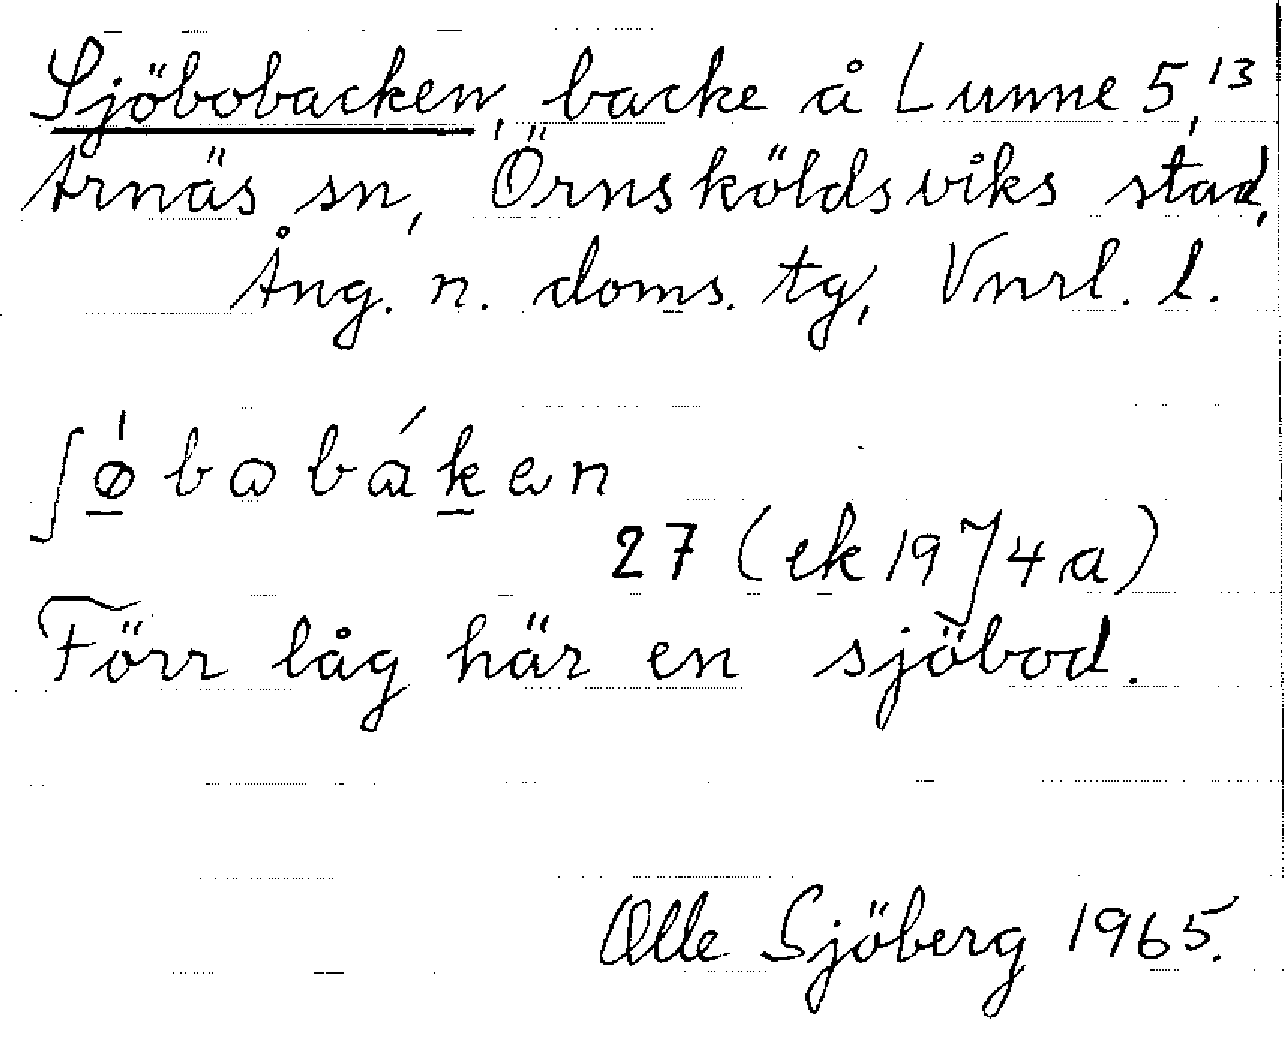 Sjöbobacken, backe å Lunne 5,13
Arnäs sn, Örnsköldsviks stad,
Ång. n. doms. tg, Vnrl. l.
ʃøbabáken
27 (ek 1974 a)
Förr låg här en sjöbod.
Olle Sjöberg 1965.